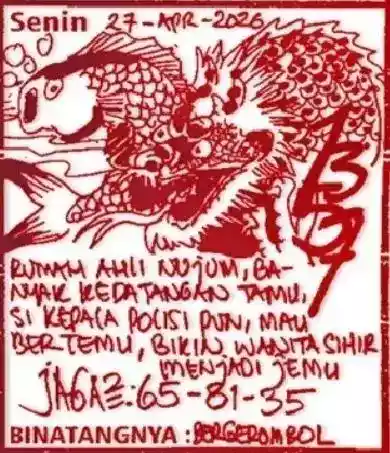 Senin 27-APR-2026
RUMAH AHLI NUJUM, BA-
NYAK KEDATANGAN TAMU,
SI KEPALA POLISI PUN, MAU
BERTEMU, BIKIN WANITA SIHIR
MENJADI JEMU
JAGA2:65-81-35
BINATANGNYA : BERGEROMBOL